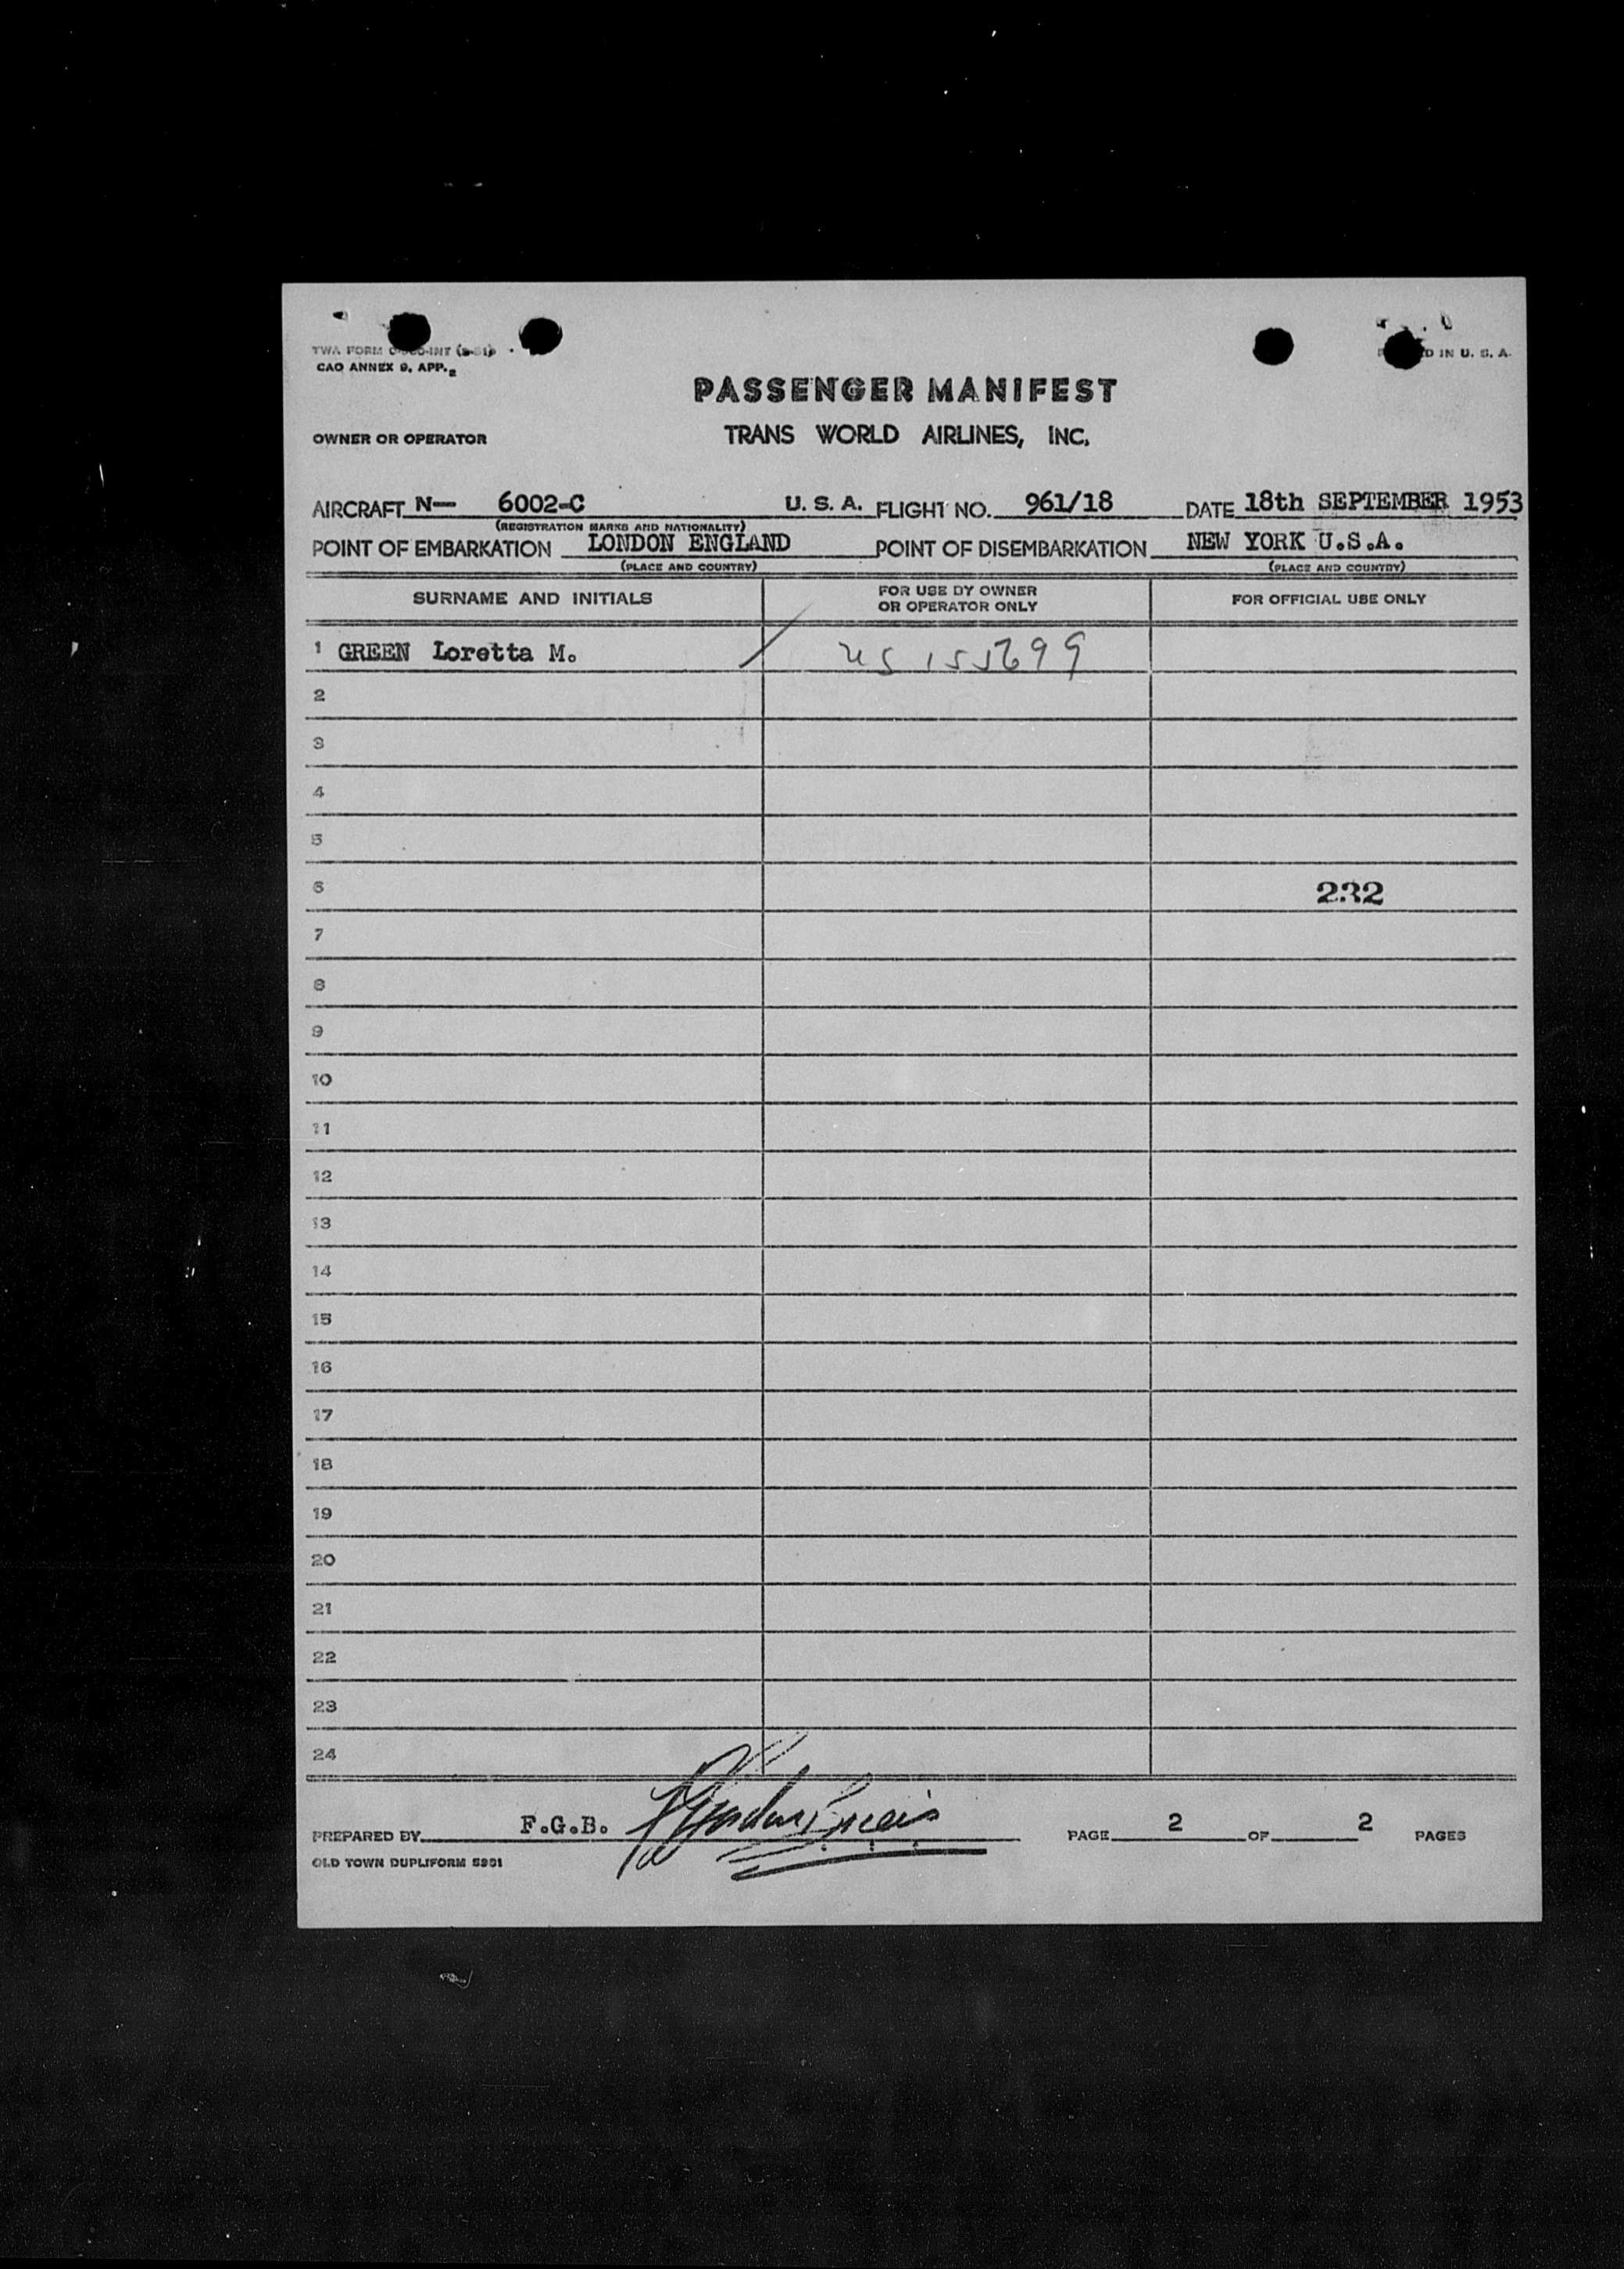 TWA FORM
CAO ANNEX 9, APP. 2
D IN U. S. A.
PASSENGER MANIFEST
OWNER OR OPERATOR TRANS WORLD AIRLINES, INC.
AIRCRAFT N— 6002-C U. S. A. FLIGHT NO. 961/18 DATE 18th SEPTEMBER 1953
(REGISTRATION MARKS AND NATIONALITY)
POINT OF EMBARKATION LONDON ENGLAND POINT OF DISEMBARKATION NEW YORK U.S.A.
(PLACE AND COUNTRY) (PLACE AND COUNTRY)
SURNAME AND INITIALS FOR USE BY OWNER OR OPERATOR ONLY FOR OFFICIAL USE ONLY
1 GREEN Loretta M. US 155699
2
3
4
5
6 232
7
8
9
10
11
12
13
14
15
16
17
18
19
20
21
22
23
24
PREPARED BY F.G.B. PAGE 2 OF 2 PAGES
OLD TOWN DUPLIFORM 5951